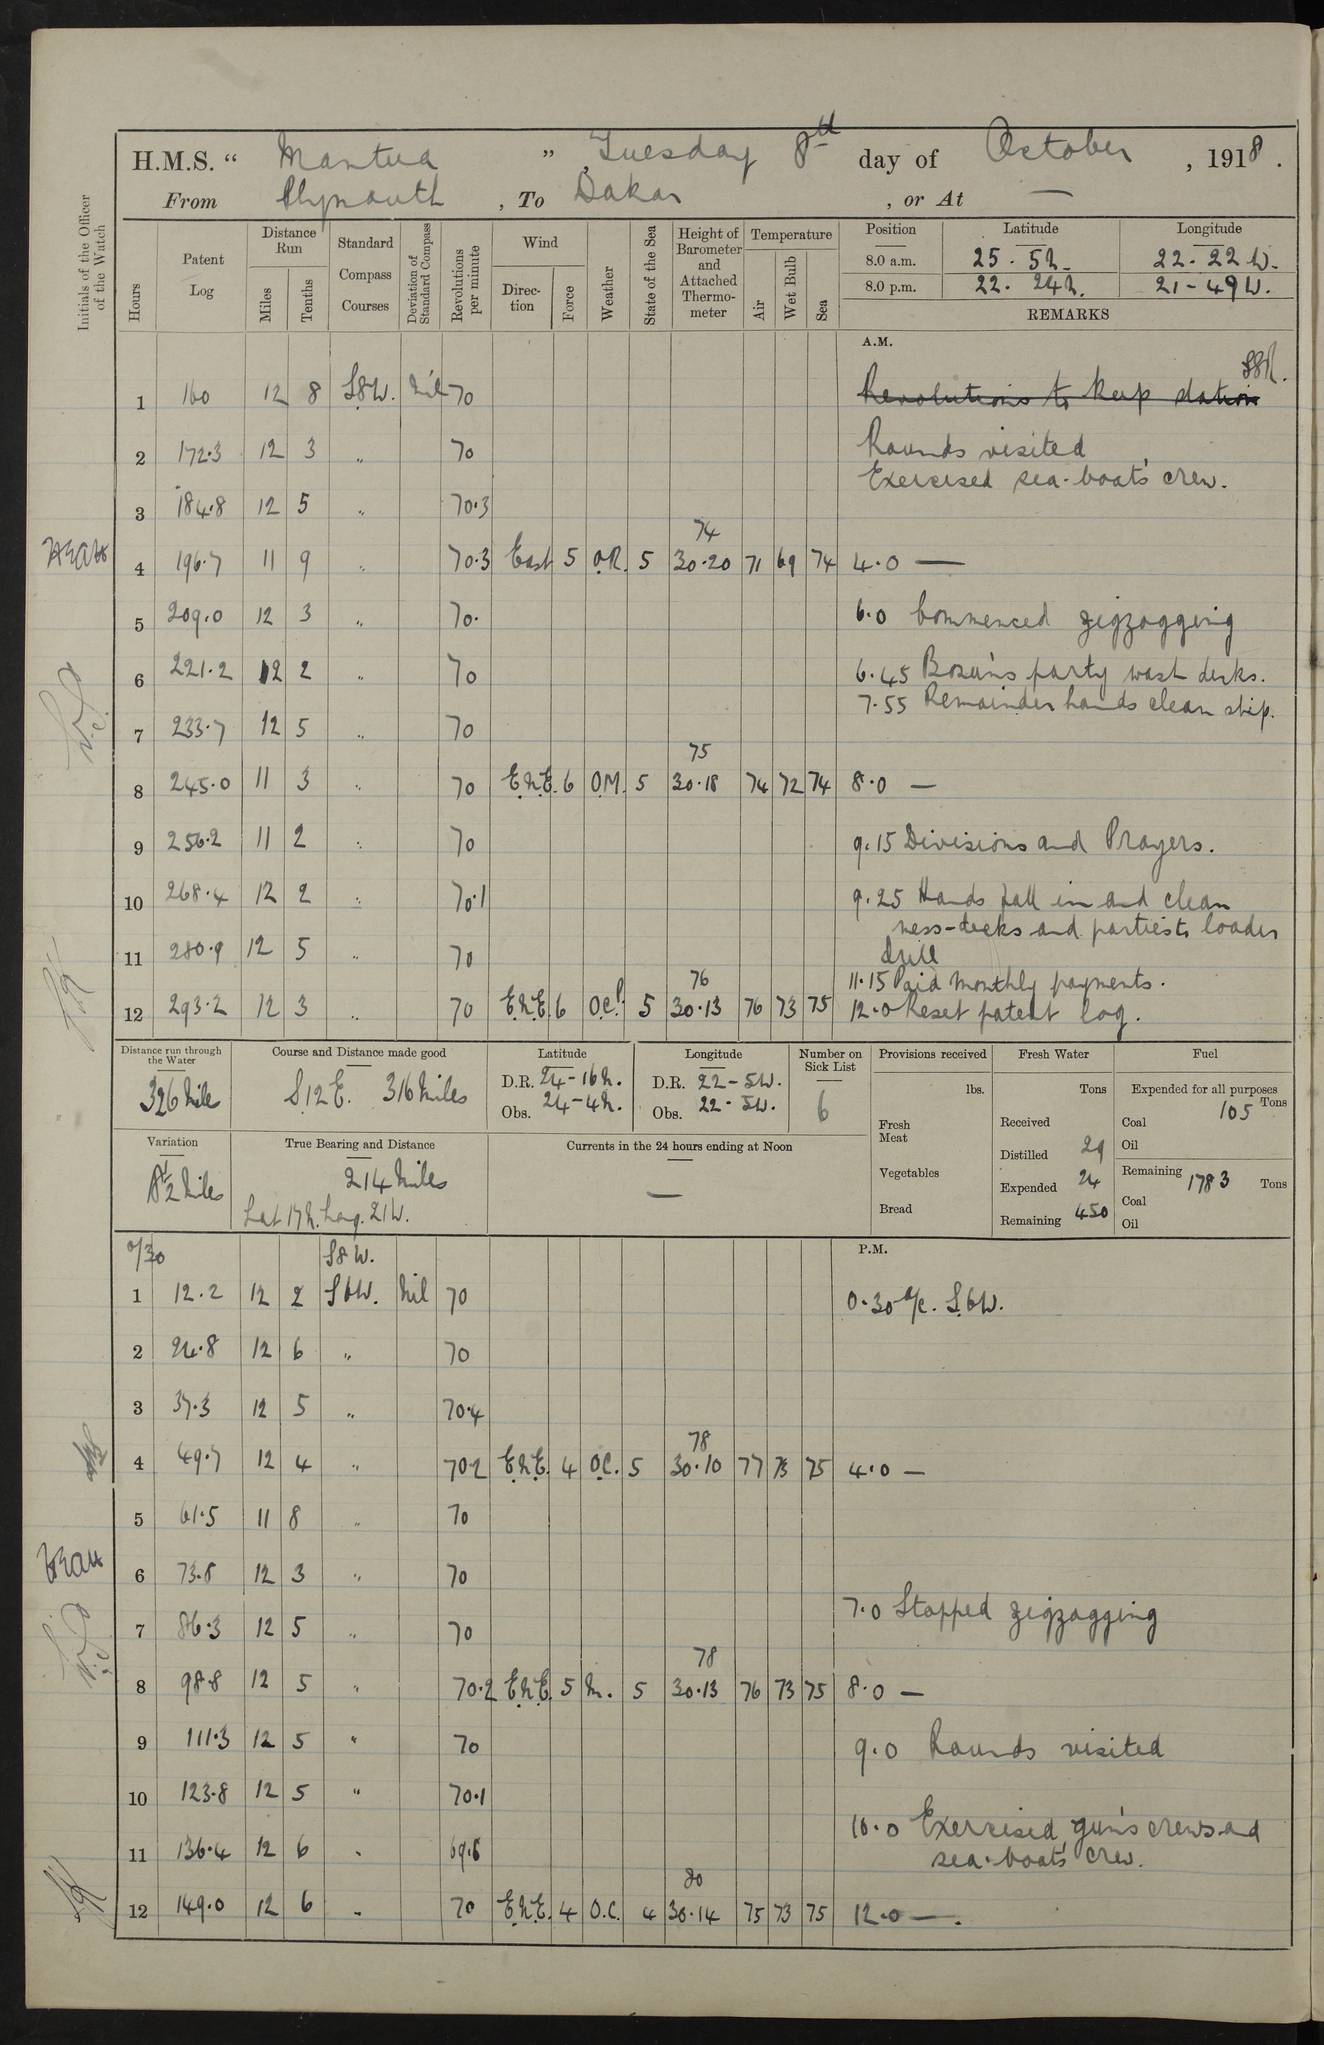 H.M.S. “ Mantua ” , Tuesday 8th day of October , 1918 .
From Plymouth , To Dakar , or At —
Initials of the Officer of the Watch
Hours
Patent Log
Distance Run
Miles
Tenths
Standard Compass Courses
Deviation of Standard Compass
Revolutions per minute
Wind
Direction
Force
Weather
State of the Sea
Height of Barometer and Attached Thermometer
Temperature
Air
Wet Bulb
Sea
Position Latitude Longitude
8.0 a.m. 25. 5N. 22. 22 W.
8.0 p.m. 22. 24N. 21-49W.
REMARKS
A.M.
SSR.
1 160 12 8 S8W. Nil 70 Revolutions to keep station
2 172.3 12 3 „ 70 Rounds visited
Exercised sea-boats' crew.
3 184.8 12 5 „ 70.3
74
4 196.7 11 9 „ 70.3 East 5 O.R. 5 30.20 71 69 74 4.0 —
5 209.0 12 3 „ 70. 6.0 Commenced zigzagging
6 221.2 12 2 „ 70 6.45 Bosun's party wash decks.
7.55 Remainder hands clean ship.
7 233.7 12 5 „ 70
75
8 245.0 11 3 „ 70 E.N.E. 6 O.M. 5 30.18 74 72 74 8.0 —
9 256.2 11 2 „ 70 9.15 Divisions and Prayers.
10 268.4 12 2 „ 70.1 9.25 Hands fall in and clean
mess-decks and parties to loader
11 280.9 12 5 „ 70 drill
76 11.15 Paid monthly payments.
12 293.2 12 3 „ 70 E.N.E. 6 O.C.P. 5 30.13 76 73 75 12.0 Reset patent log.
Distance run through the Water
326 Miles
Course and Distance made good
S.12E. 316 Miles
Latitude
D.R. 24-16N.
Obs. 24-4N.
Longitude
D.R. 22-5W.
Obs. 22-5W.
Number on Sick List
6
Provisions received
lbs.
Fresh Meat
Vegetables
Bread
Fresh Water
Tons
Received
Distilled 29
Expended 24
Remaining 450
Fuel
Expended for all purposes
105 Tons
Coal
Oil
Remaining 1783 Tons
Coal
Oil
Variation
Miles
True Bearing and Distance
214 Miles
Lat 17N. Long. 21W.
Currents in the 24 hours ending at Noon
—
0/30 S8W. P.M.
1 12.2 12 2 S6W. Nil 70 0.30 a/c. S.6W.
2 24.8 12 6 „ 70
3 37.3 12 5 „ 70.4
78
4 49.7 12 4 „ 70.2 E.N.E. 4 O.C. 5 30.10 77 73 75 4.0 —
5 61.5 11 8 „ 70
6 73.8 12 3 „ 70
7.0 Stopped zigzagging
7 86.3 12 5 „ 70
78
8 98.8 12 5 „ 70.2 E.N.E. 5 M. 5 30.13 76 73 75 8.0 —
9 111.3 12 5 „ 70 9.0 Rounds visited
10 123.8 12 5 „ 70.1
10.0 Exercised gun's crews and
11 136.4 12 6 „ 69.8 sea-boats' crew.
80
12 149.0 12 6 „ 70 E.N.E. 4 O.C. 4 30.14 75 73 75 12.0 —.